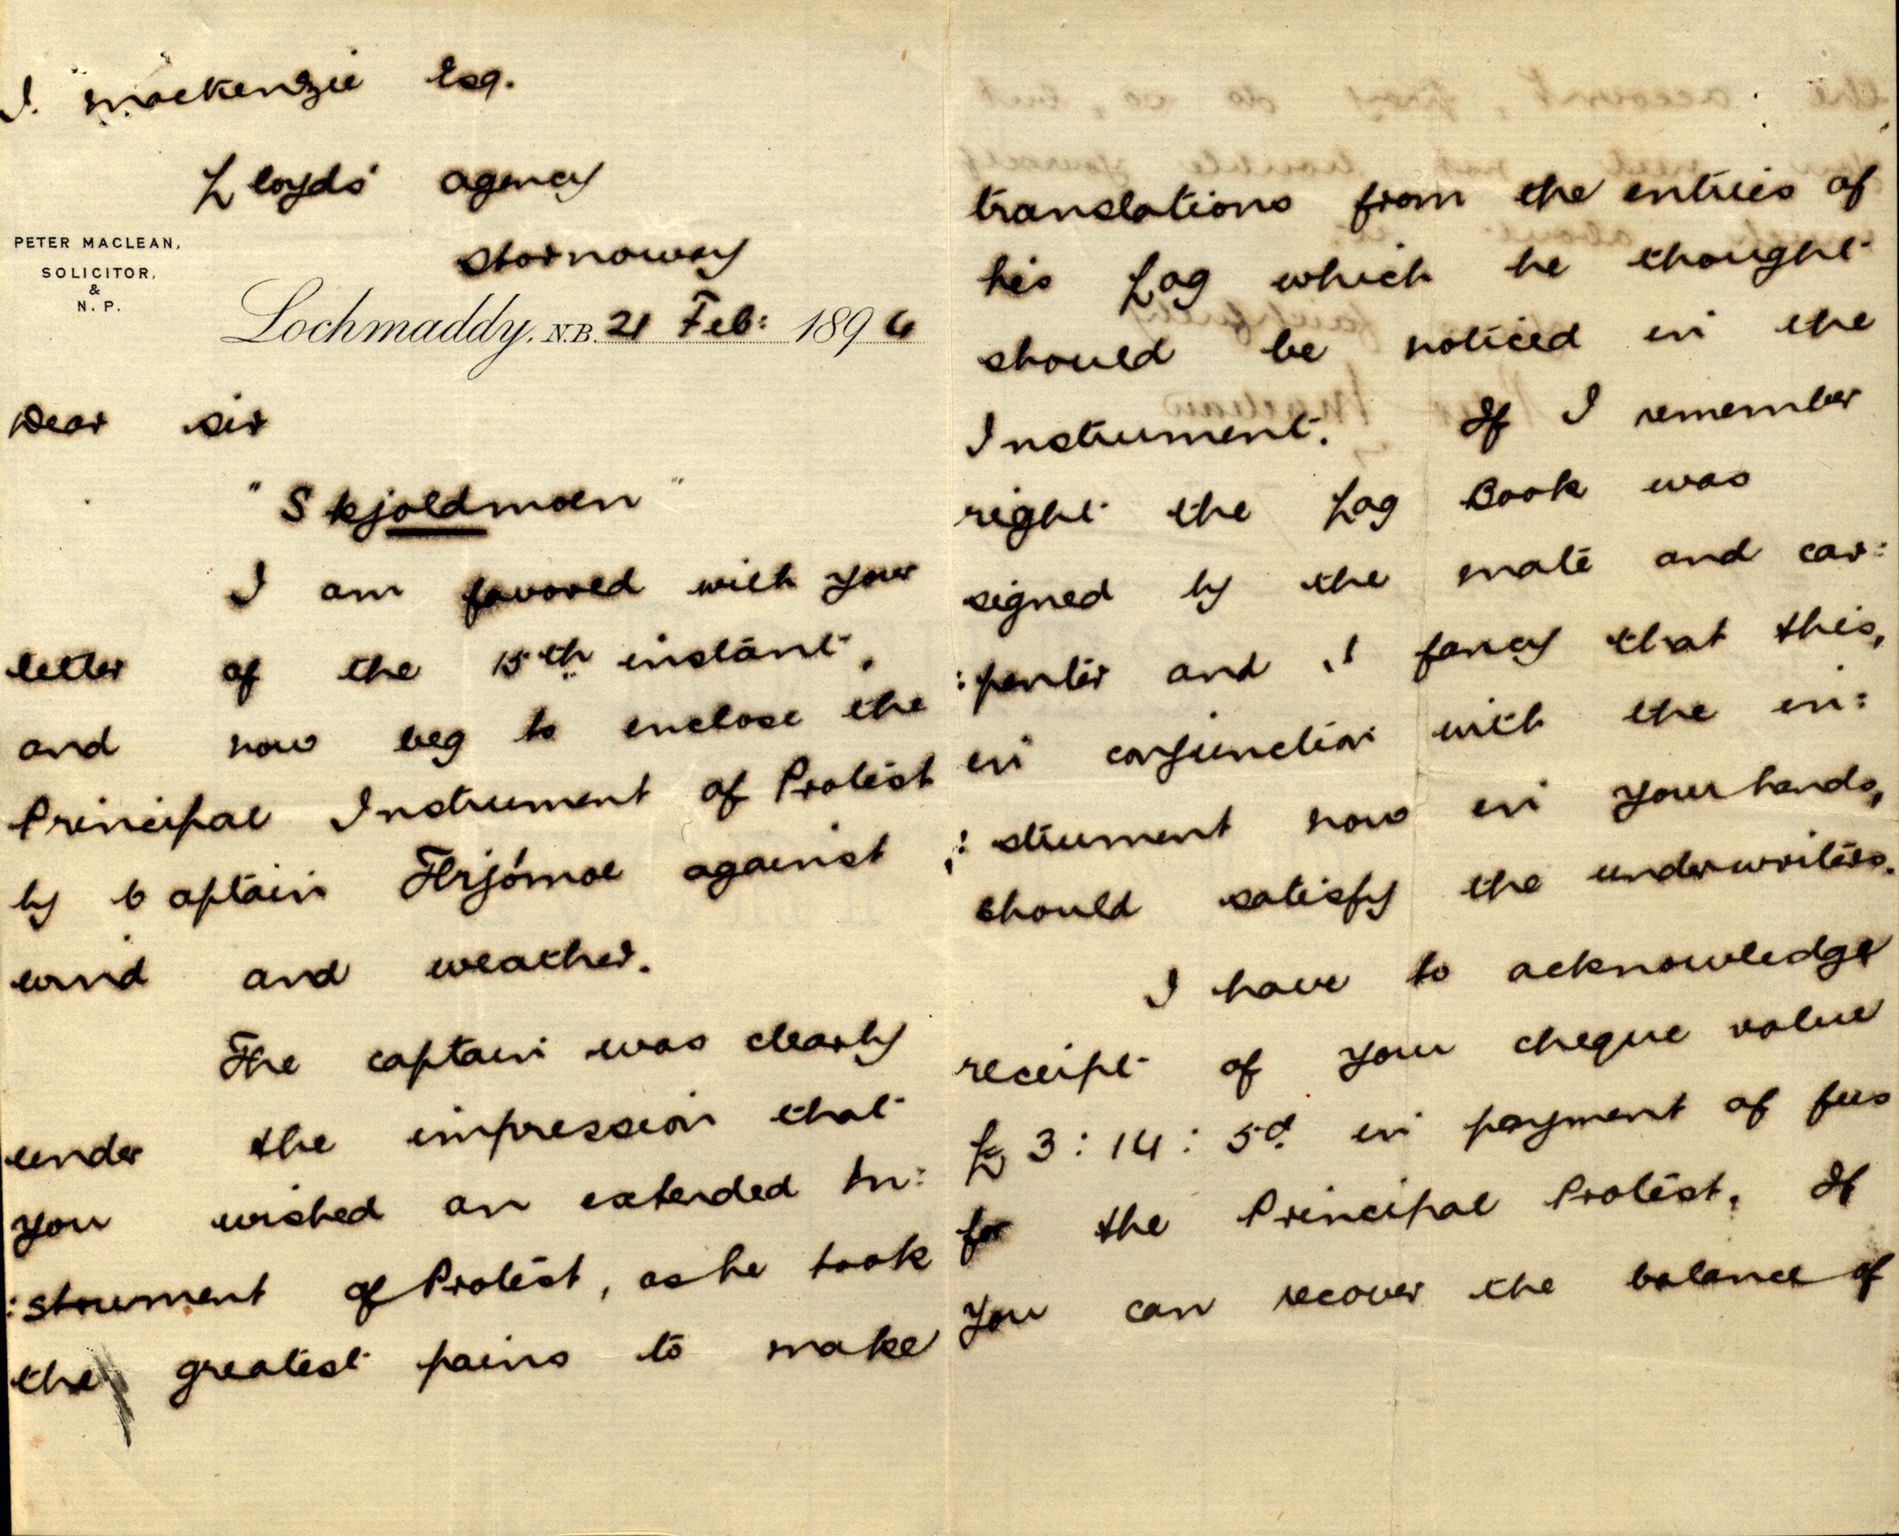 J. Mackenzie Esq.
Lloyds' Agency
Stornoway
PETER MACLEAN,
SOLICITOR,
&
N. P.
Lochmaddy, N.B. 21 Feb: 1896
Dear Sir
"Skjoldmoen"
I am favored with your
letter of the 15th instant,
and now beg to enclose the
Principal Instrument of Protest
by Captain against
wind and weather.
The Captain was clearly
under the impression that
you wished an extended In:
:strument of Protest, as he took
the greatest pains to make
translations from the entries of
his Log which he thought
should be noticed in the
Instrument. If I remember
right the Log Book was
signed by the mate and car:
:penter and I fancy that this,
in conjunction with the in:
:strument now in your hands,
should satisfy the underwriters.
I have to acknowledge
receipt of your cheque value
£3:14:5d. in payment of fees
for the Principal Protest. If
you can recover the balance of